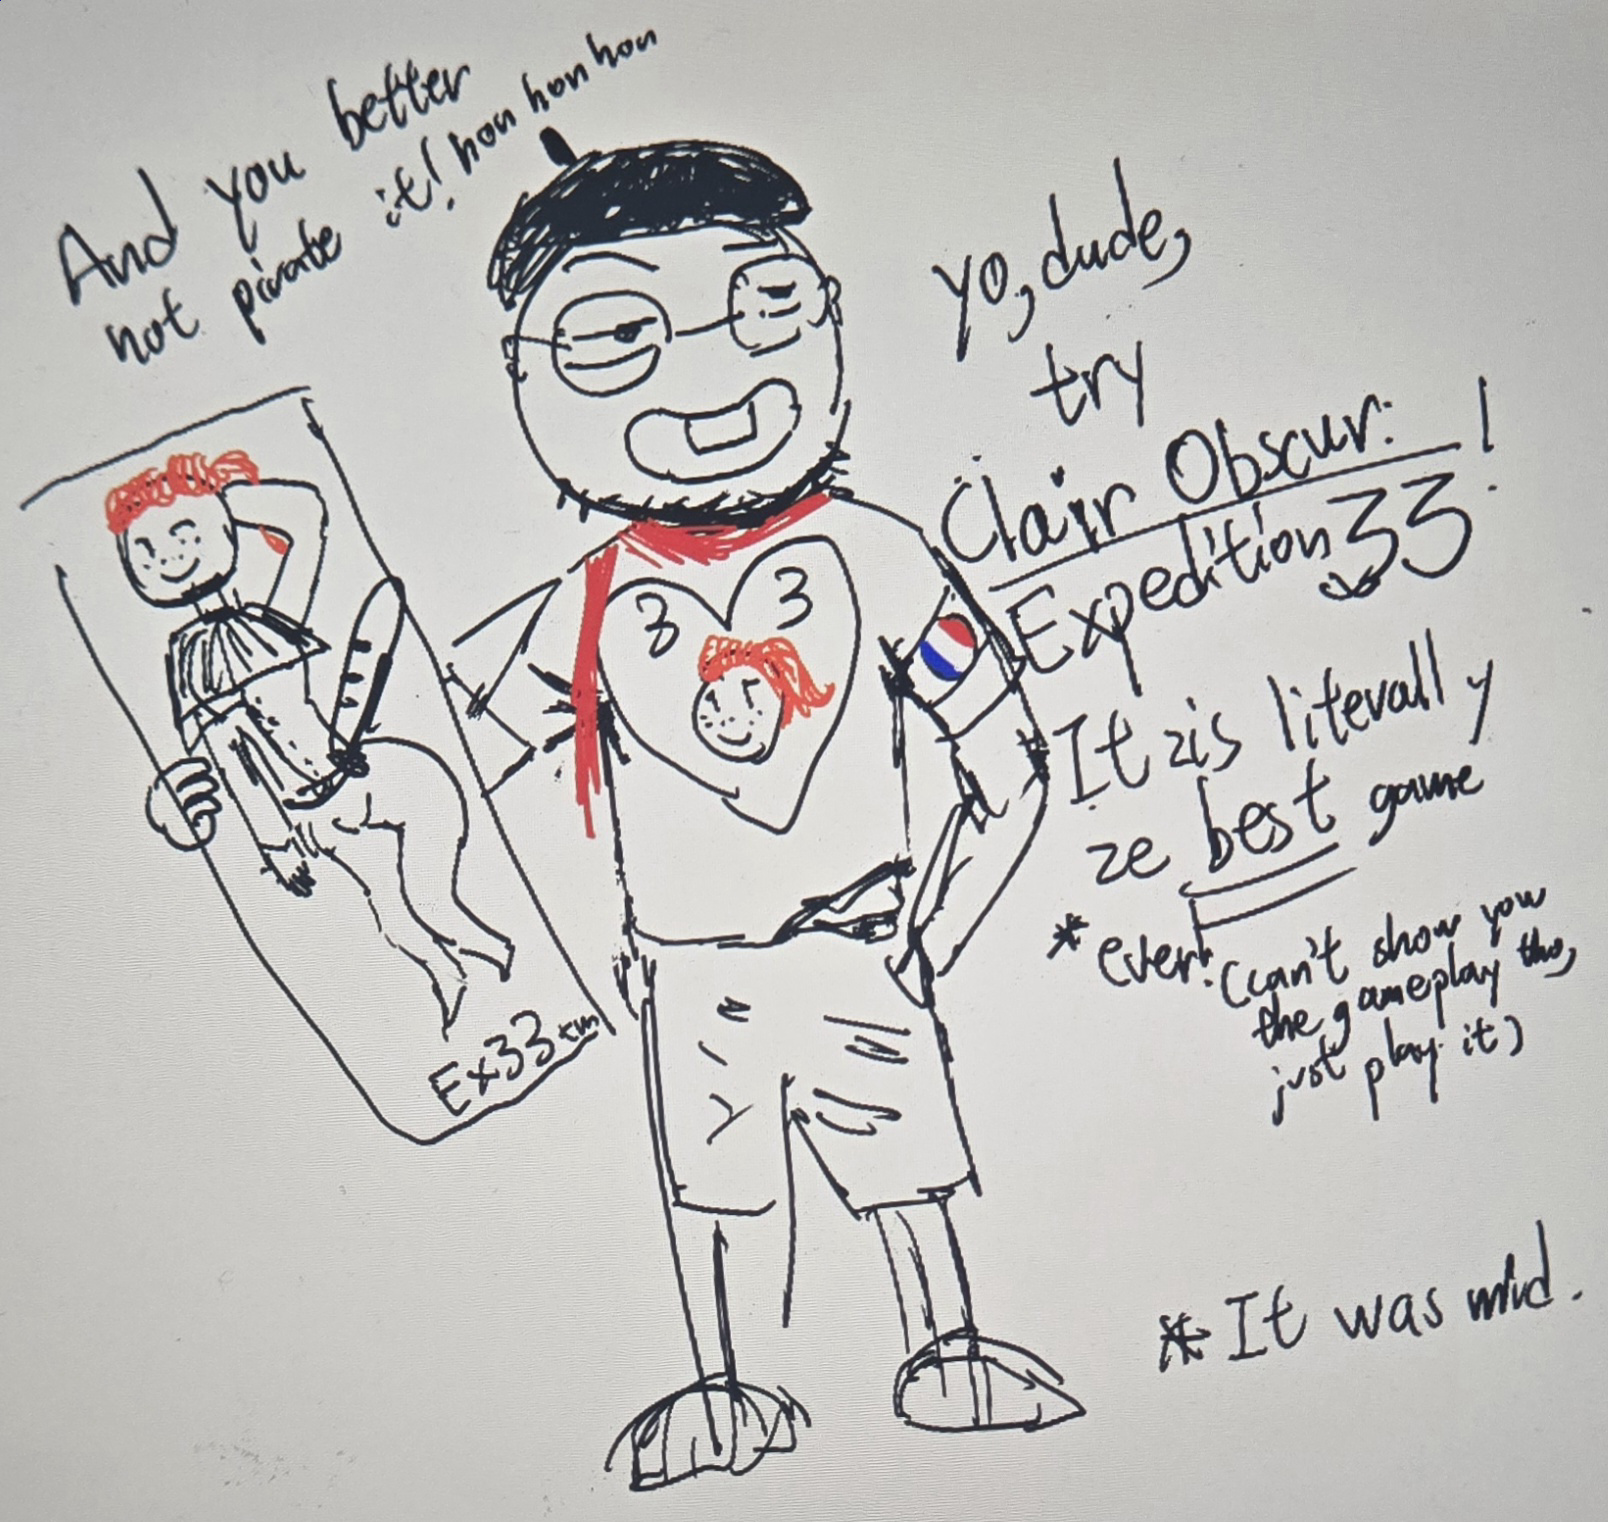 And you better
not private it! hon hon hon hon
yo, dude,
try
Clair Obscur:
Expedition 33!
It zis literally
ze best game
*ever! (can't show you
the gameplay tho,
just play it)
3 3
Ex33
* It was mid.